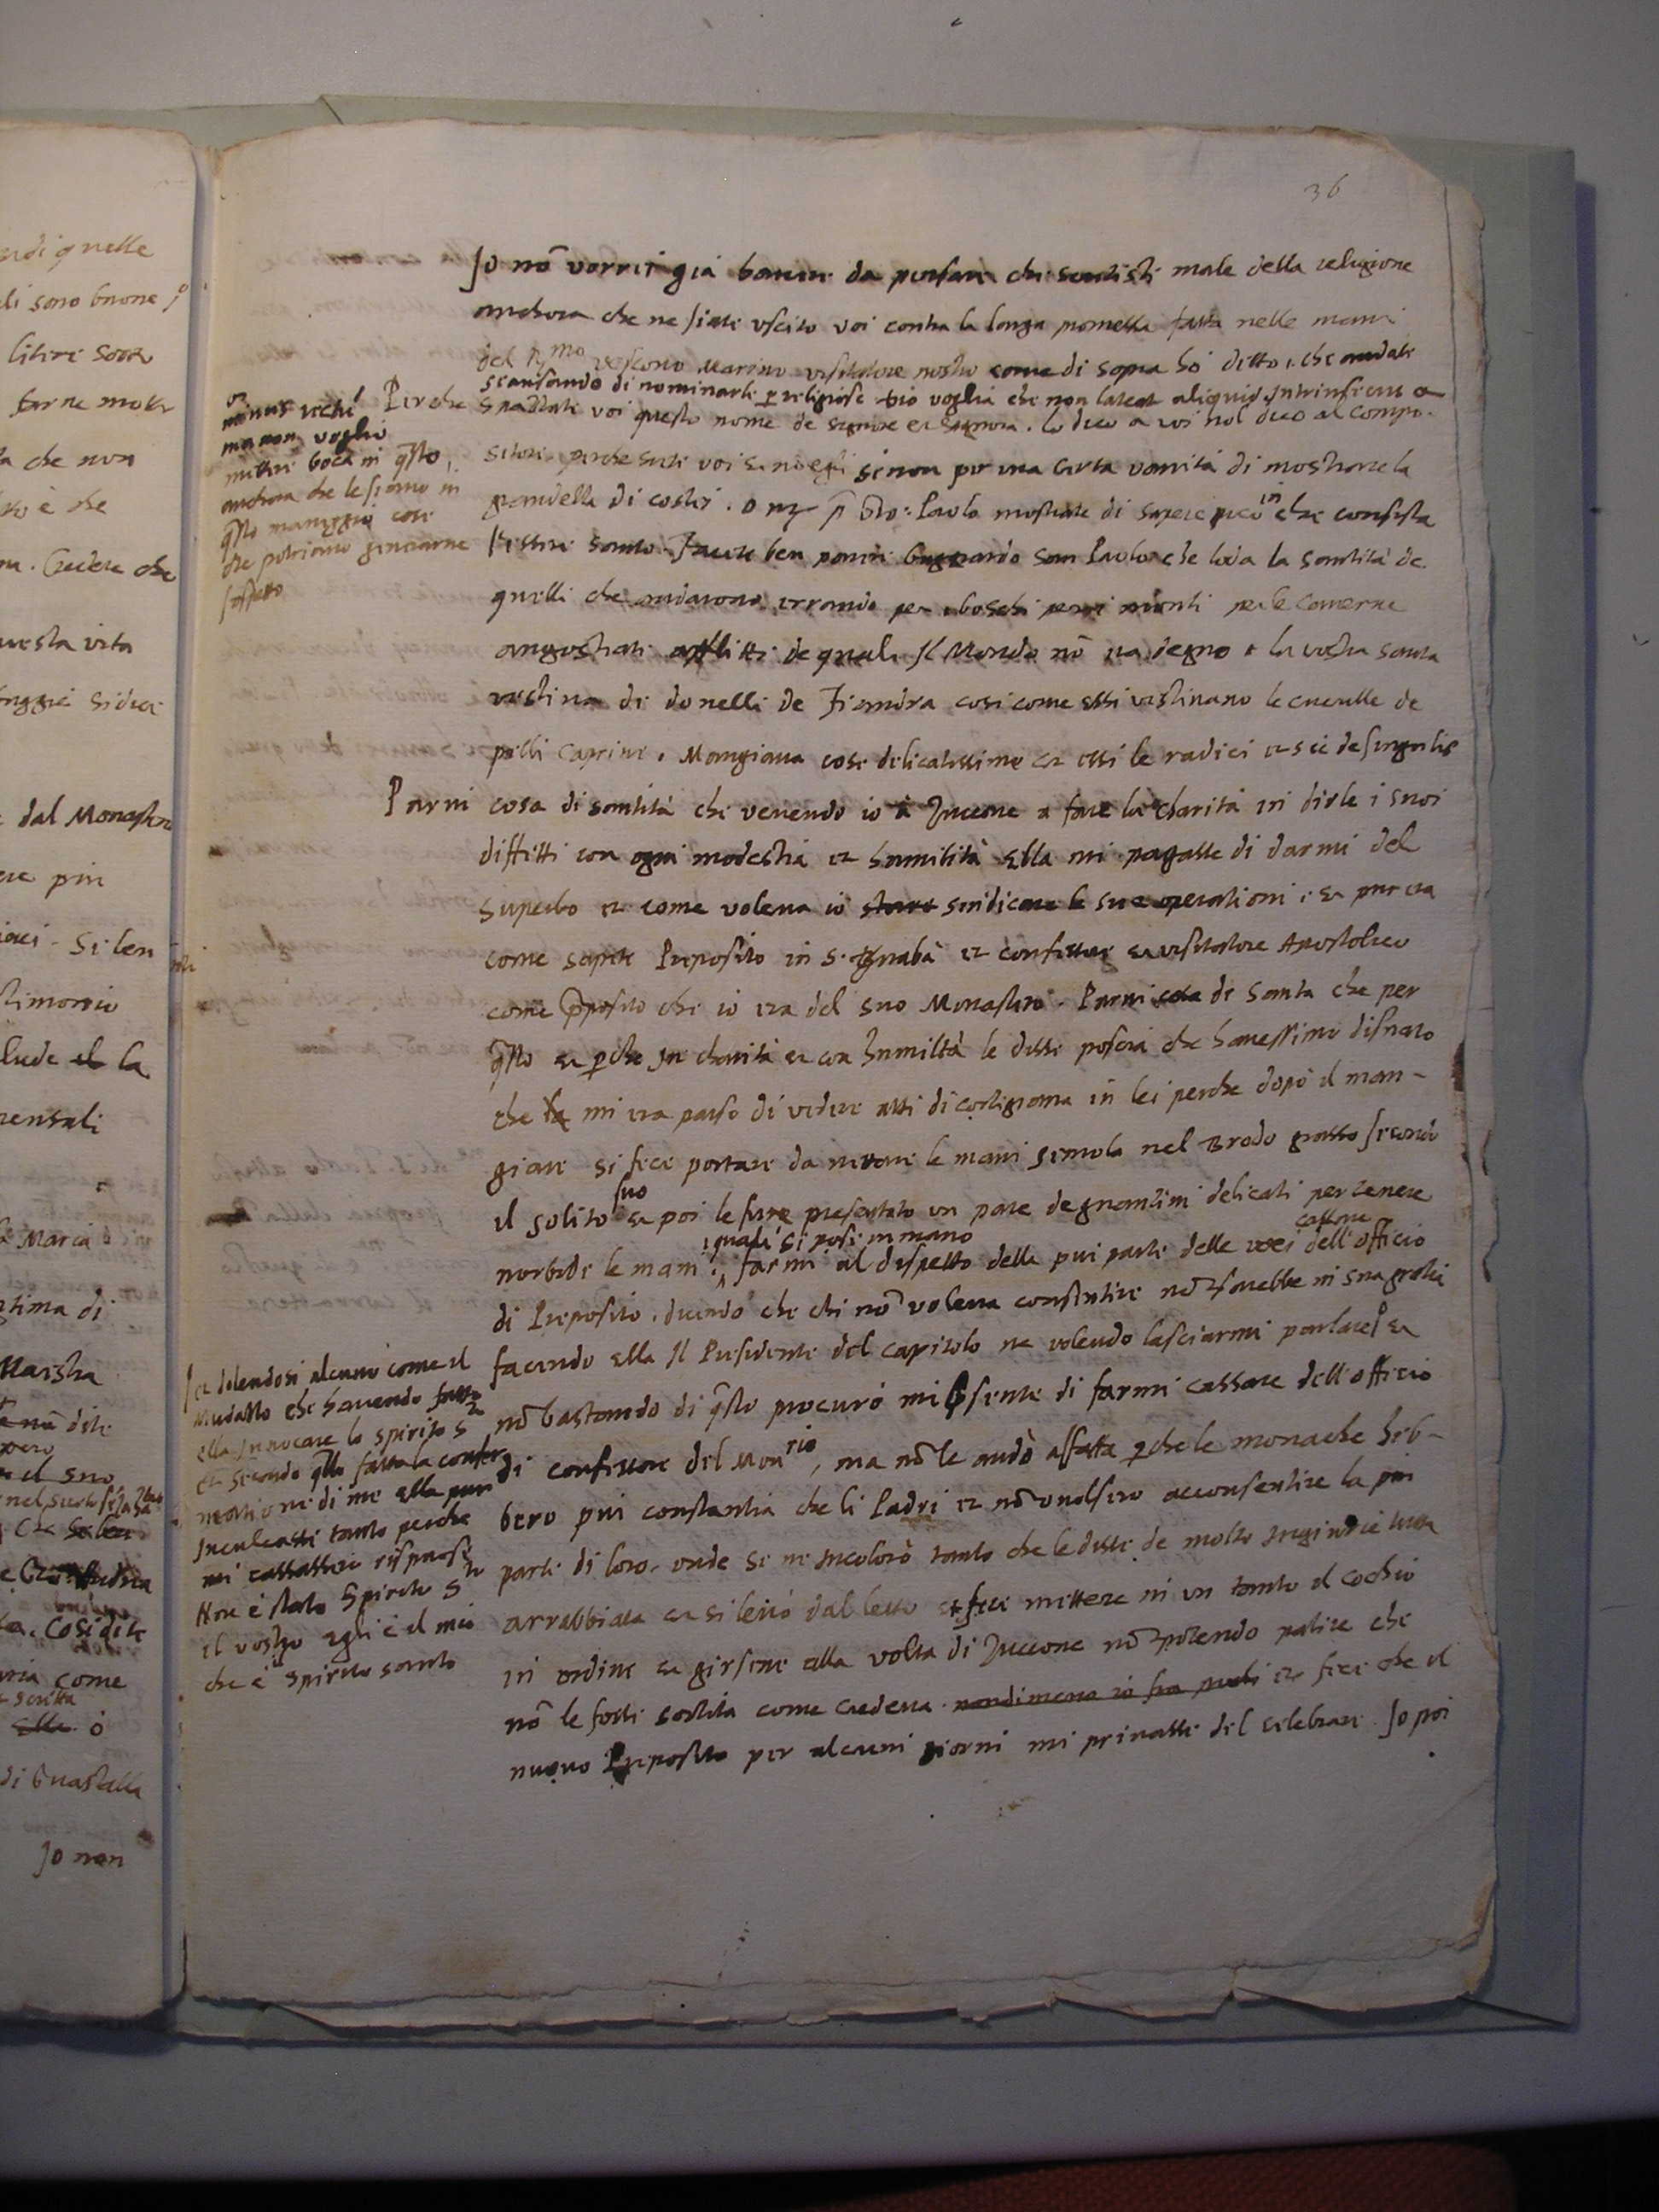 36
Jo nō vorrei già havere da pensare che sentisti male della religione
anchora che ne siate uscito voi contra la longa promessa fatta nelle mani
del R.mo vescovo Marino visitatore nostro come di sopra hò ditto, che andate
scansando di nominarle religiose Dio voglia che non lateat aliquid intrinsecus
Perche spazzate voi questo nome de signore et signora. lo dico a voi nol dico al compo-
sitore. perche sete voi si no egli se non per una certa vanità di mostrare la
grandezza di costei. Paolo mostrate di sapere poco in che consista
l'essere santo. Facete ben parere bugiardo san Paolo che loda la santità de
quelli che andavano errando per i boschi per i monti per le caverne
angustiati afflitti de quali Jl Mondo nō era degno. la vostra santa
vestiva di donelli de Fiandra cosi come essi vestivano le cuculle de
pelli caprine. Mangiava cose delicatissime et essi le radici
Parvi cosa di santità che venendo io à Zuccone a fare la charità in dirle i suoi
diffetti con ogni modestia et humilità ella mi pagasse di darmi del
superbo et come voleva io stare sindicare le sue operationi, et pur era
come sapete Preposito in S. Bernabà et confessore et visitatore Apostolico
come pposito che io era del suo Monastero. Parvi cosa di santa che per
qsto et pche in charità et con humiltà le dissi poscia che havessimo disnato
che mi era parso di vedere atti di cortigiana in lei perche dopò il man-
giare si fece portare da nettare le mani semola nel Brodo grasso secondo
il solito suo et poi le fur presentato un pare de guantini delicati per tenere
morbide le mani i quali si pose in mano, farmi al dispetto della più parte delle voci cassare dell'officio
di Preposito, dicendo che chi nō voleva consentire nō sarebbe in sua gratia
facendo ella Jl Presidente del capitolo ne volendo lasciarmi parlare et
nō bastando di qsto procurò mi psente di farmi cassare dell'officio
di confessore del Monrio, ma nō le andò affatta pche le monache heb-
bero più constantia che li Padri et nō volsero acconsentire la più
parte di loro. onde se ne incolorò tanto che le disse de molte ingiurie tutta
arrabbiata et si levò dal letto et fece mettere in un tanto il cochio
in ordine et girsene alla volta di Zuccone nō potendo patire che
nō le fosse sortita come credeva. nondimeno io fra pochi et fece che il
nuovo Preposito per alcuni giorni mi privasse del celebrare. Jo poi
ma non voglio
mettere boca in qsto,
anchora che le siamo in
qsto maneggio cose
che potriano generarne
sospetto
et dolendosi alcuno come il
Mudasso che havendo fatto
ella invocare lo spirito Sto
et secondo qllo fatta la confer-
matione di me ella pur
inculcasse tanto perche
mi cassassero rispuose
Non è stato Spirito Sto
il vostro egli è il mio
che è spirito santo
di quelle
li sono buone
litere
farne
che non
è che
. Credere che
questa vita
si dice
dal Monastero
più
. Si ben
stimonio
lude il la
Maria
tima di
dite
il suo
. Cosi dite
come
scritta
ella ò
di Guastalla
Jo non